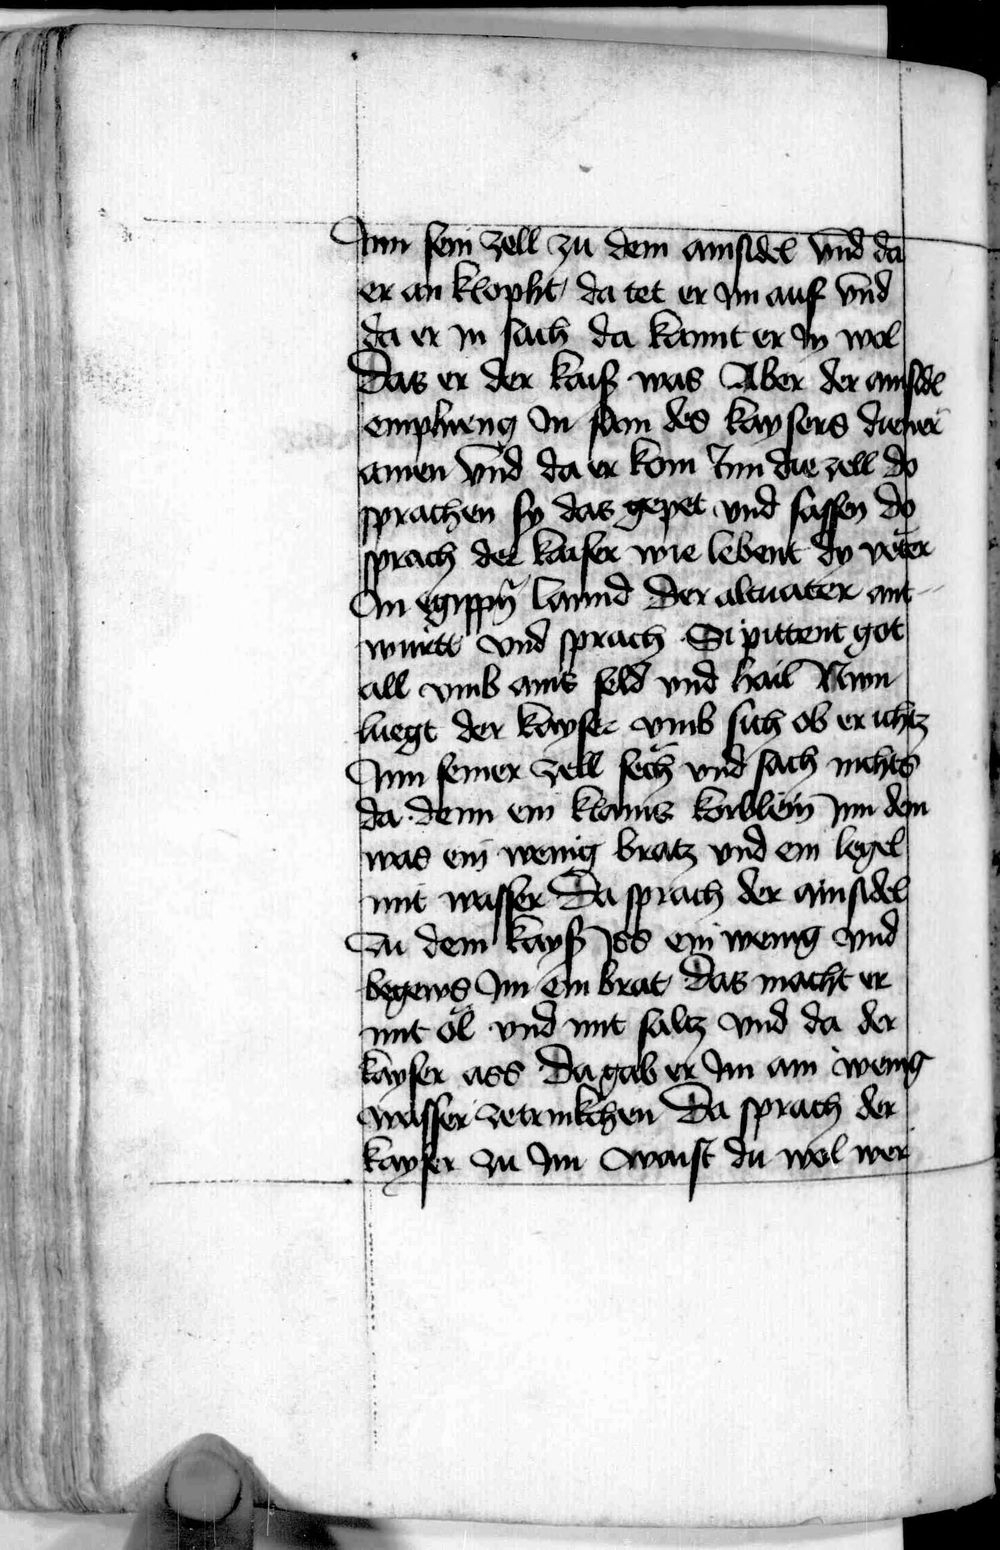 Inn sein zell zu dem ainsidel vnd da
er an klopht da tet er Im auf vnd
da er in sach da kannt er In wol
Das er der kaiß was Aber der ainsidl
emphieng In sam des kaysers diener
ainen Vnd da er kom Inn die zell do
sprachen sy das gepet vnd sassen do
sprach der kaiser wie lebent dy veter
In egippñ lannd Der altuater ant
wurtt vnd sprach Si pittent got
all vmb ains seld vnd hail Nun
luegt der kayser vmb sich ob er ichtz
Inn seiner zell sech vnd sach nichts
da denn ein klains korblein Inn dem
was ein wenig bratz vnd ein legel
mit wasser Da sprach der ainsidel
zu dem kayß Iss ein wenig vnd
begews Im ein brat Das macht er
mit öl vnd mit saltz vnd da der
kayser ass Da gab er Im ain wenig
wasser zetrinkchen Da sprach der
kayser zu Im Waist du wol wer